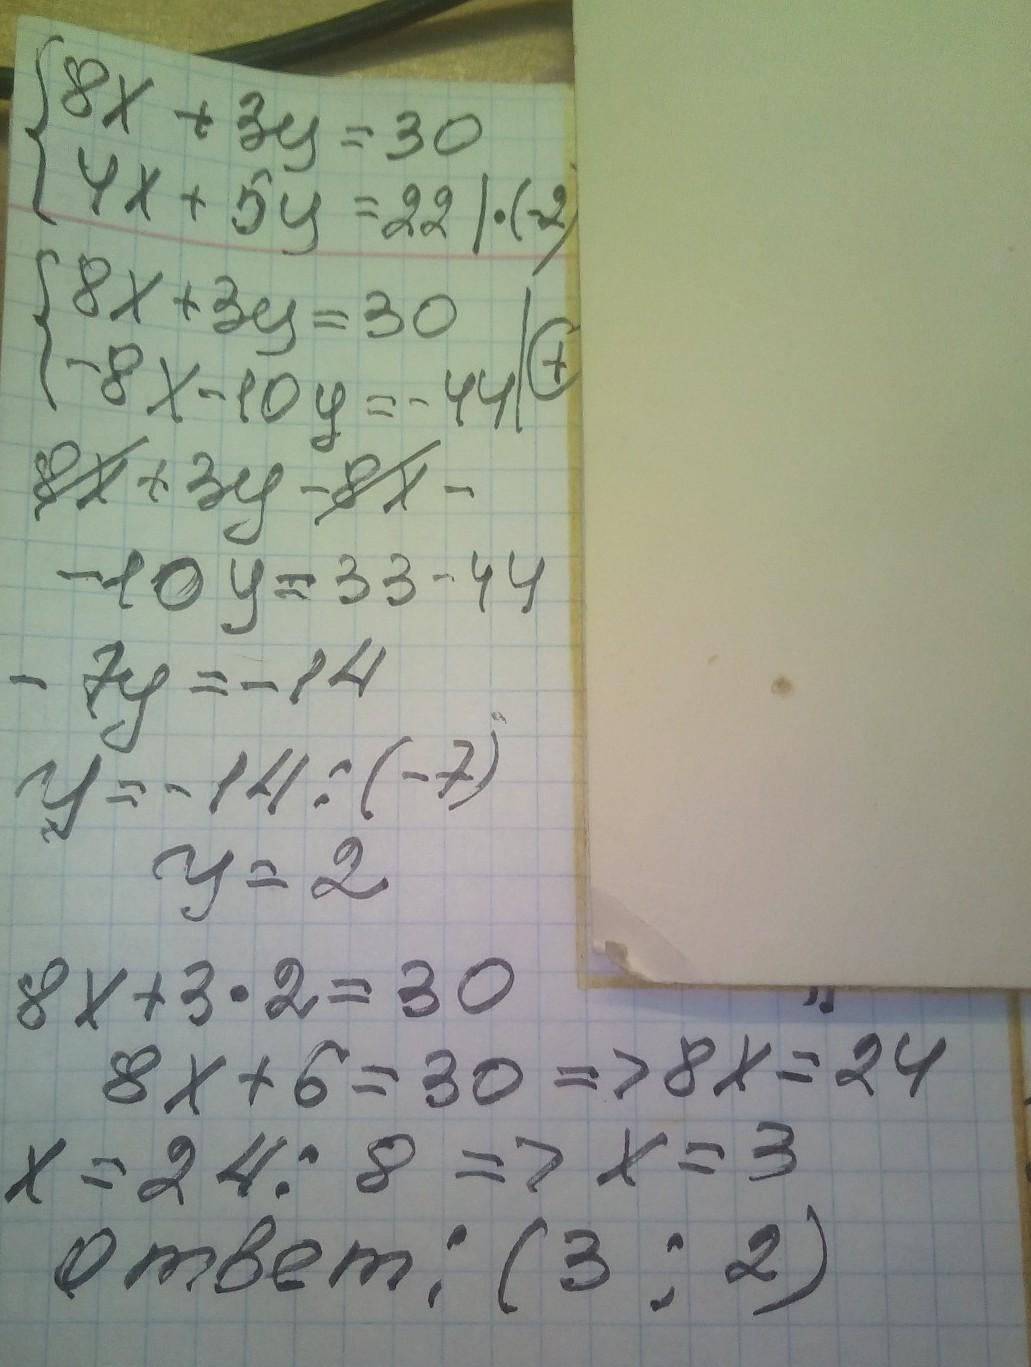 8x + 3y = 30
4x + 5y = 22 | · (-2)
8x + 3y = 30
-8x - 10y = -44 | (+)
8x + 3y - 8x -
-10y = 33 - 44
- 7y = -14
y = -14 : (-7)
y = 2
8x + 3 · 2 = 30
8x + 6 = 30 => 8x = 24
x = 24 : 8 => x = 3
ответ: (3 ; 2)